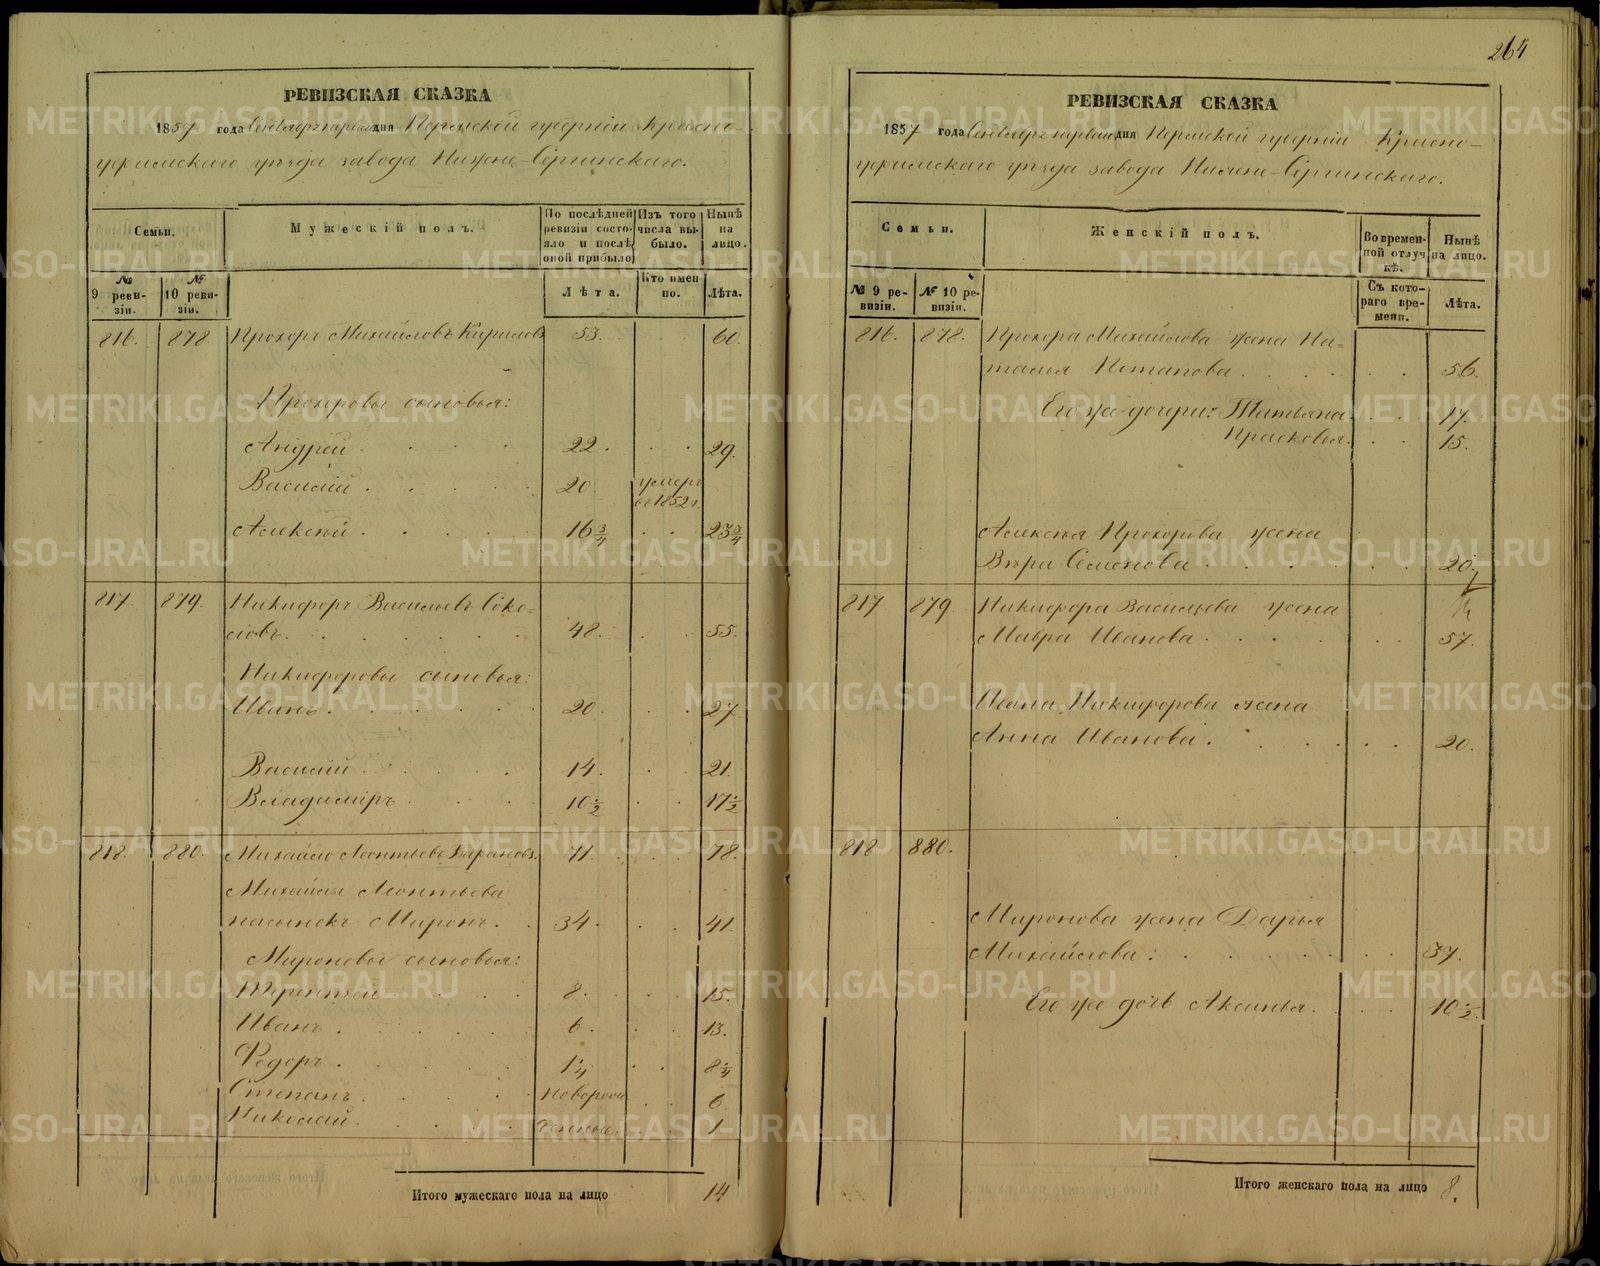 РЕВИЗСКАЯ СКАЗКА
1857 года Сентября первая дня Пермской губерніи Красно-
уфимскаго уѣзда завода Нижне-Сергинскаго.
Семьи.
Мужескій полъ.
По послѣдней ревизіи состояло и послѣ оной прибыло
Изъ того числа выбыло.
Нынѣ на лицо.
№ 9 ревизіи.
№ 10 ревизіи.
Лѣта.
Кто именно.
Лѣта.
816. 878 Прохоръ Михайловъ Кириловъ 53. 60.
Прохоровы сыновья:
Андрей 22. 29.
Василій 20. умеръ въ 1852 г.
Алексѣй 16 3/4 23 3/4
817. 879. Никифоръ Васильевъ Соко-
ловъ. 48. 55.
Никифоровы сыновья:
Иванъ 20 27
Василій 14. 21.
Владиміръ 10 1/2 17 1/2
818. 880. Михайло Леонтьевъ Барановъ. 71. 78.
Михайла Леонтьева
пасынокъ Миронъ. 34. 41
Мироновы сыновья:
Терентей 8. 15.
Иванъ 6. 13.
Федоръ 1 1/4 8 1/4
Степанъ Новорож 6
Николай денные. 1
Итого мужескаго пола на лицо 14
264
РЕВИЗСКАЯ СКАЗКА
1857 года Сентября первая дня Пермской губерніи Красно-
уфимскаго уѣзда завода Нижне-Сергинскаго.
Семьи.
Женскій полъ.
Во временной отлучкѣ.
Нынѣ на лицо.
№ 9 ревизіи.
№ 10 ревизіи.
Съ котораго времени.
Лѣта.
816. 878. Прохора Михайлова жена На-
талья Потапова 56.
Его же дочери: Татьяна 17.
Прасковья. 15.
Алексѣя Прохорова жена
Вѣра Семенова 20.
817 879. Никифора Васильева жена
Мавра Иванова 57.
Ивана Никифорова жена
Анна Иванова. 20.
818 880.
Миронова жена Дарья
Михайлова: 37.
Его же дочь Аксинья. 10 1/2
Итого женскаго пола на лицо 8.
METRIKI.GASO-URAL.RU